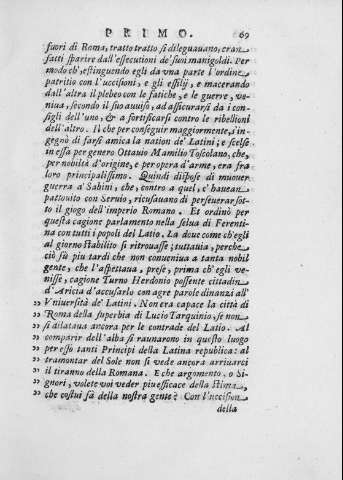 PRIMO. 69
fuori di Roma, tratto tratto si dileguauano, eran
fatti sparire dall'essecutioni de' suoi manigoldi. Per
modo ch', estinguendo egli da vna parte l'ordine
patritio con l'vccisioni, e gli essilij, e macerando
dall'altra il plebeo con le fatiche, e le guerre, ve-
niua, secondo il suo auuiso, ad assicurarsi da i con-
sigli dell'uno, & a fortificarsi contro le ribellioni
dell'altro. Il che per conseguir maggiormente, s'in-
gegnò di farsi amica la nation de' Latini; e scelse
in essa per genero Ottauio Mamilio Toscolano, che,
per nobiltà d'origine, e per opera d'arme, era fra
loro principalissimo. Quindi dispose di muouer
guerra a' Sabini, che, contro a quel, c'haueuan
pattouito con Seruio, ricusauano di perseuerar sot-
to il giogo dell'imperio Romano. Et ordinò per
questa cagione parlamento nella selua di Ferenti-
na con tutti i popoli del Latio. La doue come ch'egli
al giorno stabilito si ritrouasse; tuttauia, perche
ciò fù più tardi che non conueniua a tanta nobil
gente, che l'aspettaua, prese, prima ch'egli ve-
nisse, cagione Turno Herdonio possente cittadin
d'Aricia d'accusarlo con agre parole dinanzi all'
„ Vniuersità de' Latini. Non era capace la città di
„ Roma della superbia di Lucio Tarquinio, se non
„ si dilataua ancora per le contrade del Latio. Al
„ comparir dell'alba si raunarono in questo luogo
„ per esso tanti Principi della Latina republica: al
„ tramontar del Sole non si vede ancora arriuarci
„ il tiranno della Romana. E che argomento, o Si-
„ gnori, volete voi veder più efficace della stima,
„ che costui fà della nostra gente? Con l'vccision
della